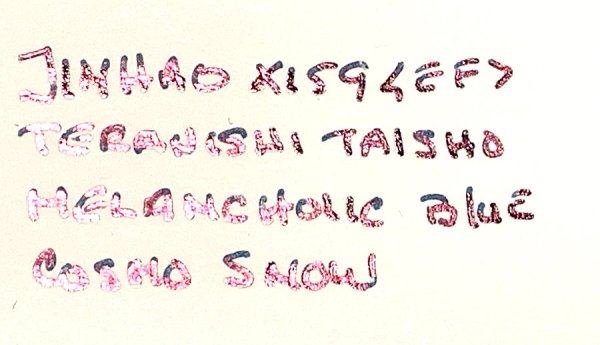 JINHAO X159 <EF>
TERANISHI TAISHO
MELANCHOLIC BLUE
COSMO SNOW